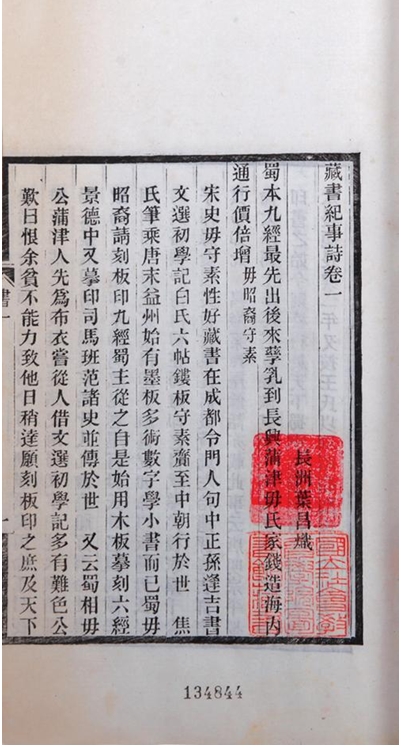 藏書紀事詩卷一
長洲葉昌熾
蜀本九經最先出後來孳乳到長興蒲津毋氏家錢造海內
通行價倍增 毋昭裔守素
宋史毋守素性好藏書在成都令門人句中正孫逢吉書
文選初學記白氏六帖鏤板守素齎至中朝行於世 焦
氏筆乘唐末益州始有墨板多術數字學小書而已蜀毋
昭裔請刻板印九經蜀主從之自是始用木板摹刻六經
景德中又摹印司馬班范諸史並傳於世 又云蜀相毋
公蒲津人先爲布衣嘗從人借文選初學記多有難色公
歎曰恨余貧不能力致他日稍達願刻板印之庶及天下
書一
一
134844